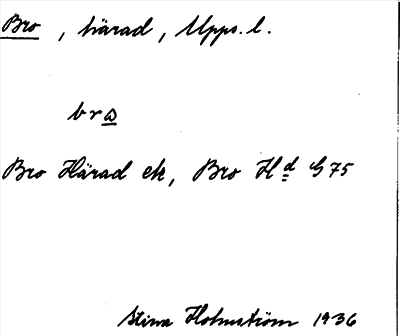 Bro, härad, Upps. l.
bro
Bro Härad ek, Bro Hd G 75
Stina Holmström 1936